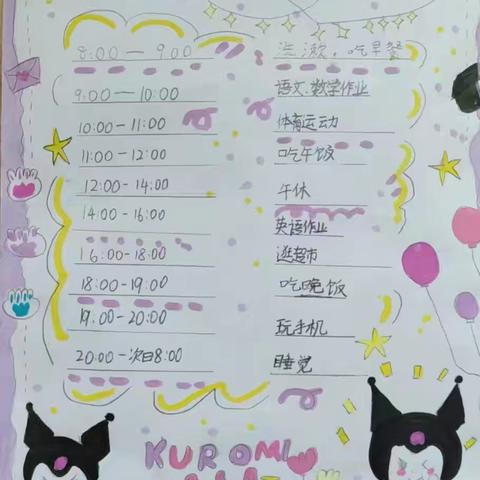 8:00 — 9:00 洗漱，吃早餐
9:00 — 10:00 语文.数学作业
10:00 - 11:00 体育运动
11:00 - 12:00 吃午饭
12:00 - 14:00 午休
14:00 - 16:00 英语作业
16:00 - 18:00 逛超市
18:00 - 19:00 吃晚饭
19:00 - 20:00 玩手机
20:00 - 次日8:00 睡觉
KUROMI